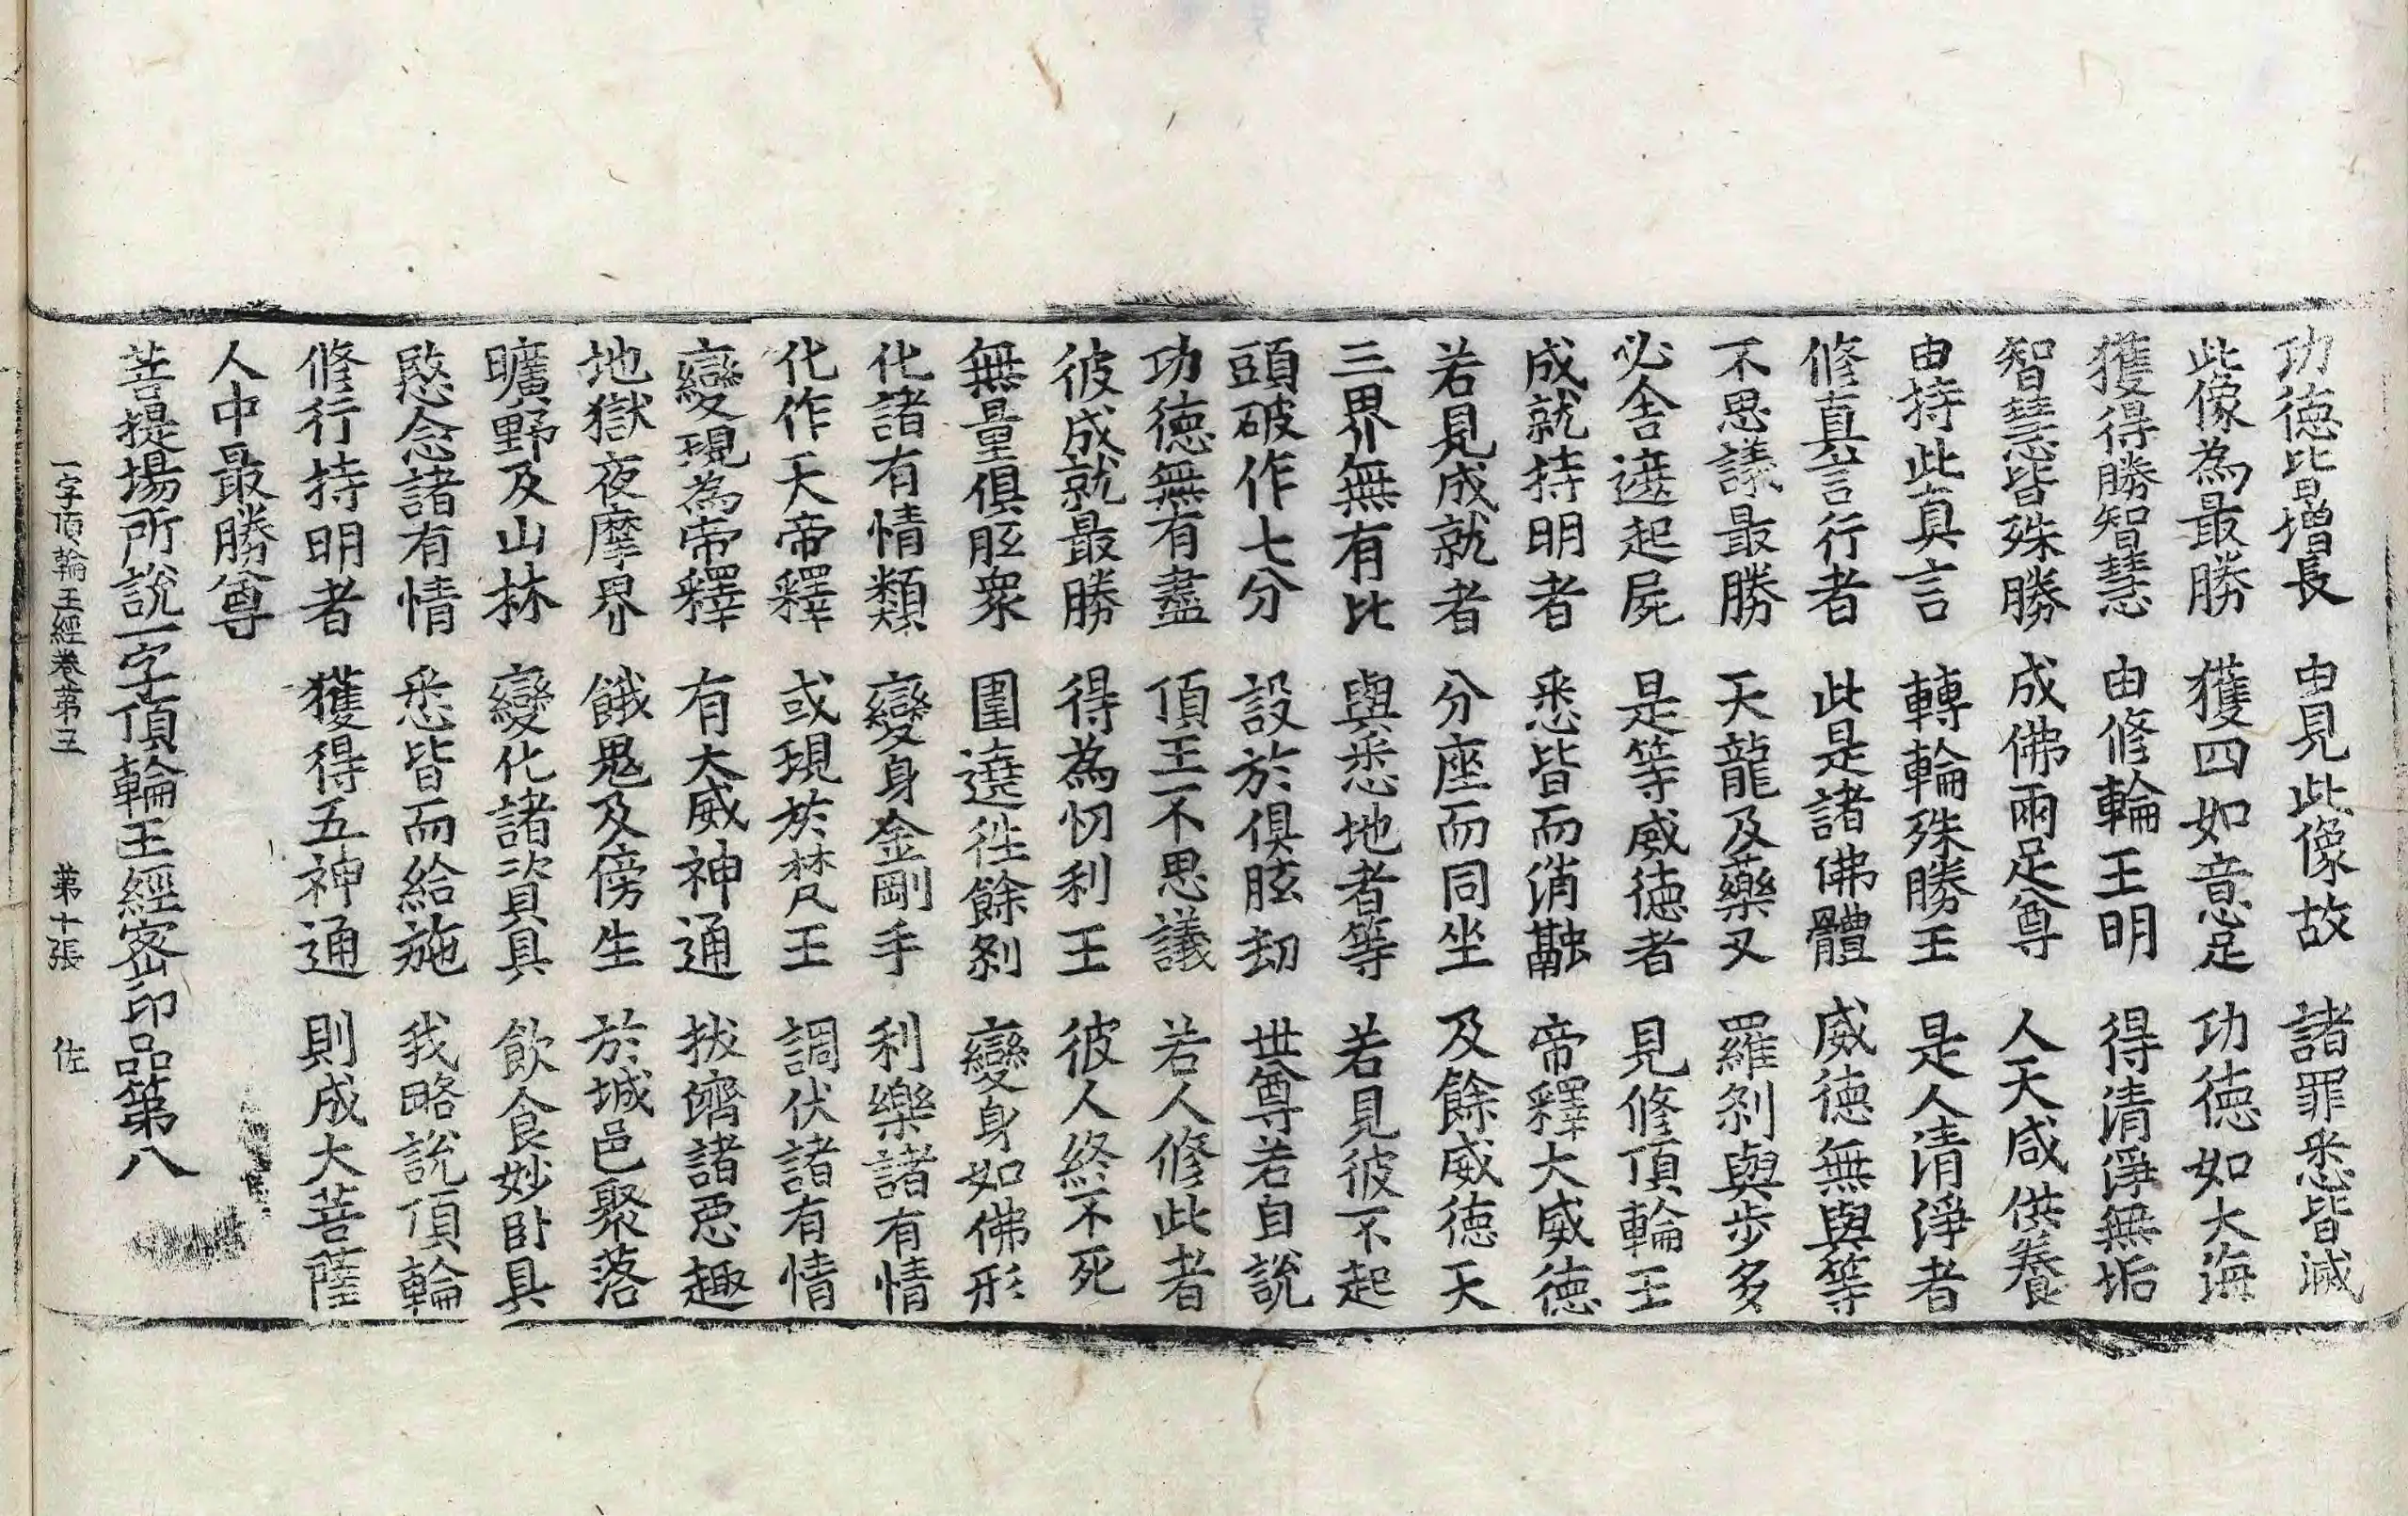 功德皆增長　由見此像故　諸罪悉皆滅
此像為最勝　獲四如意足　功德如大海
獲得勝智慧　由修輪王明　得清淨無垢
智慧皆殊勝　成佛兩足尊　人天咸供養
由持此真言　轉輪殊勝王　是人清淨者
修真言行者　此是諸佛體　威德無與等
不思議最勝　天龍及藥叉　羅剎與步多
必舍遮起屍　是等威德者　見修頂輪王
成就持明者　悉皆而消融　帝釋大威德
若見成就者　分座而同坐　及餘威德天
三界無有比　與悉地者等　若見彼不起
頭破作七分　設於俱胝劫　世尊若自說
功德無有盡　頂王不思議　若人修此者
彼成就最勝　得為忉利王　彼人終不死
無量俱胝眾　圍遶往餘剎　變身如佛形
化諸有情類　變身金剛手　利樂諸有情
化作天帝釋　或現於梵王　調伏諸有情
變現為帝釋　有大威神通　拔濟諸惡趣
地獄夜摩界　餓鬼及傍生　於城邑聚落
曠野及山林　變化諸資具　飲食妙卧具
愍念諸有情　悉皆而給施　我略說頂輪
修行持明者　獲得五神通　則成大菩薩
人中最勝尊
菩提場所說一字頂輪王經密印品第八
一字頂輪王經卷第三　第十張　佐